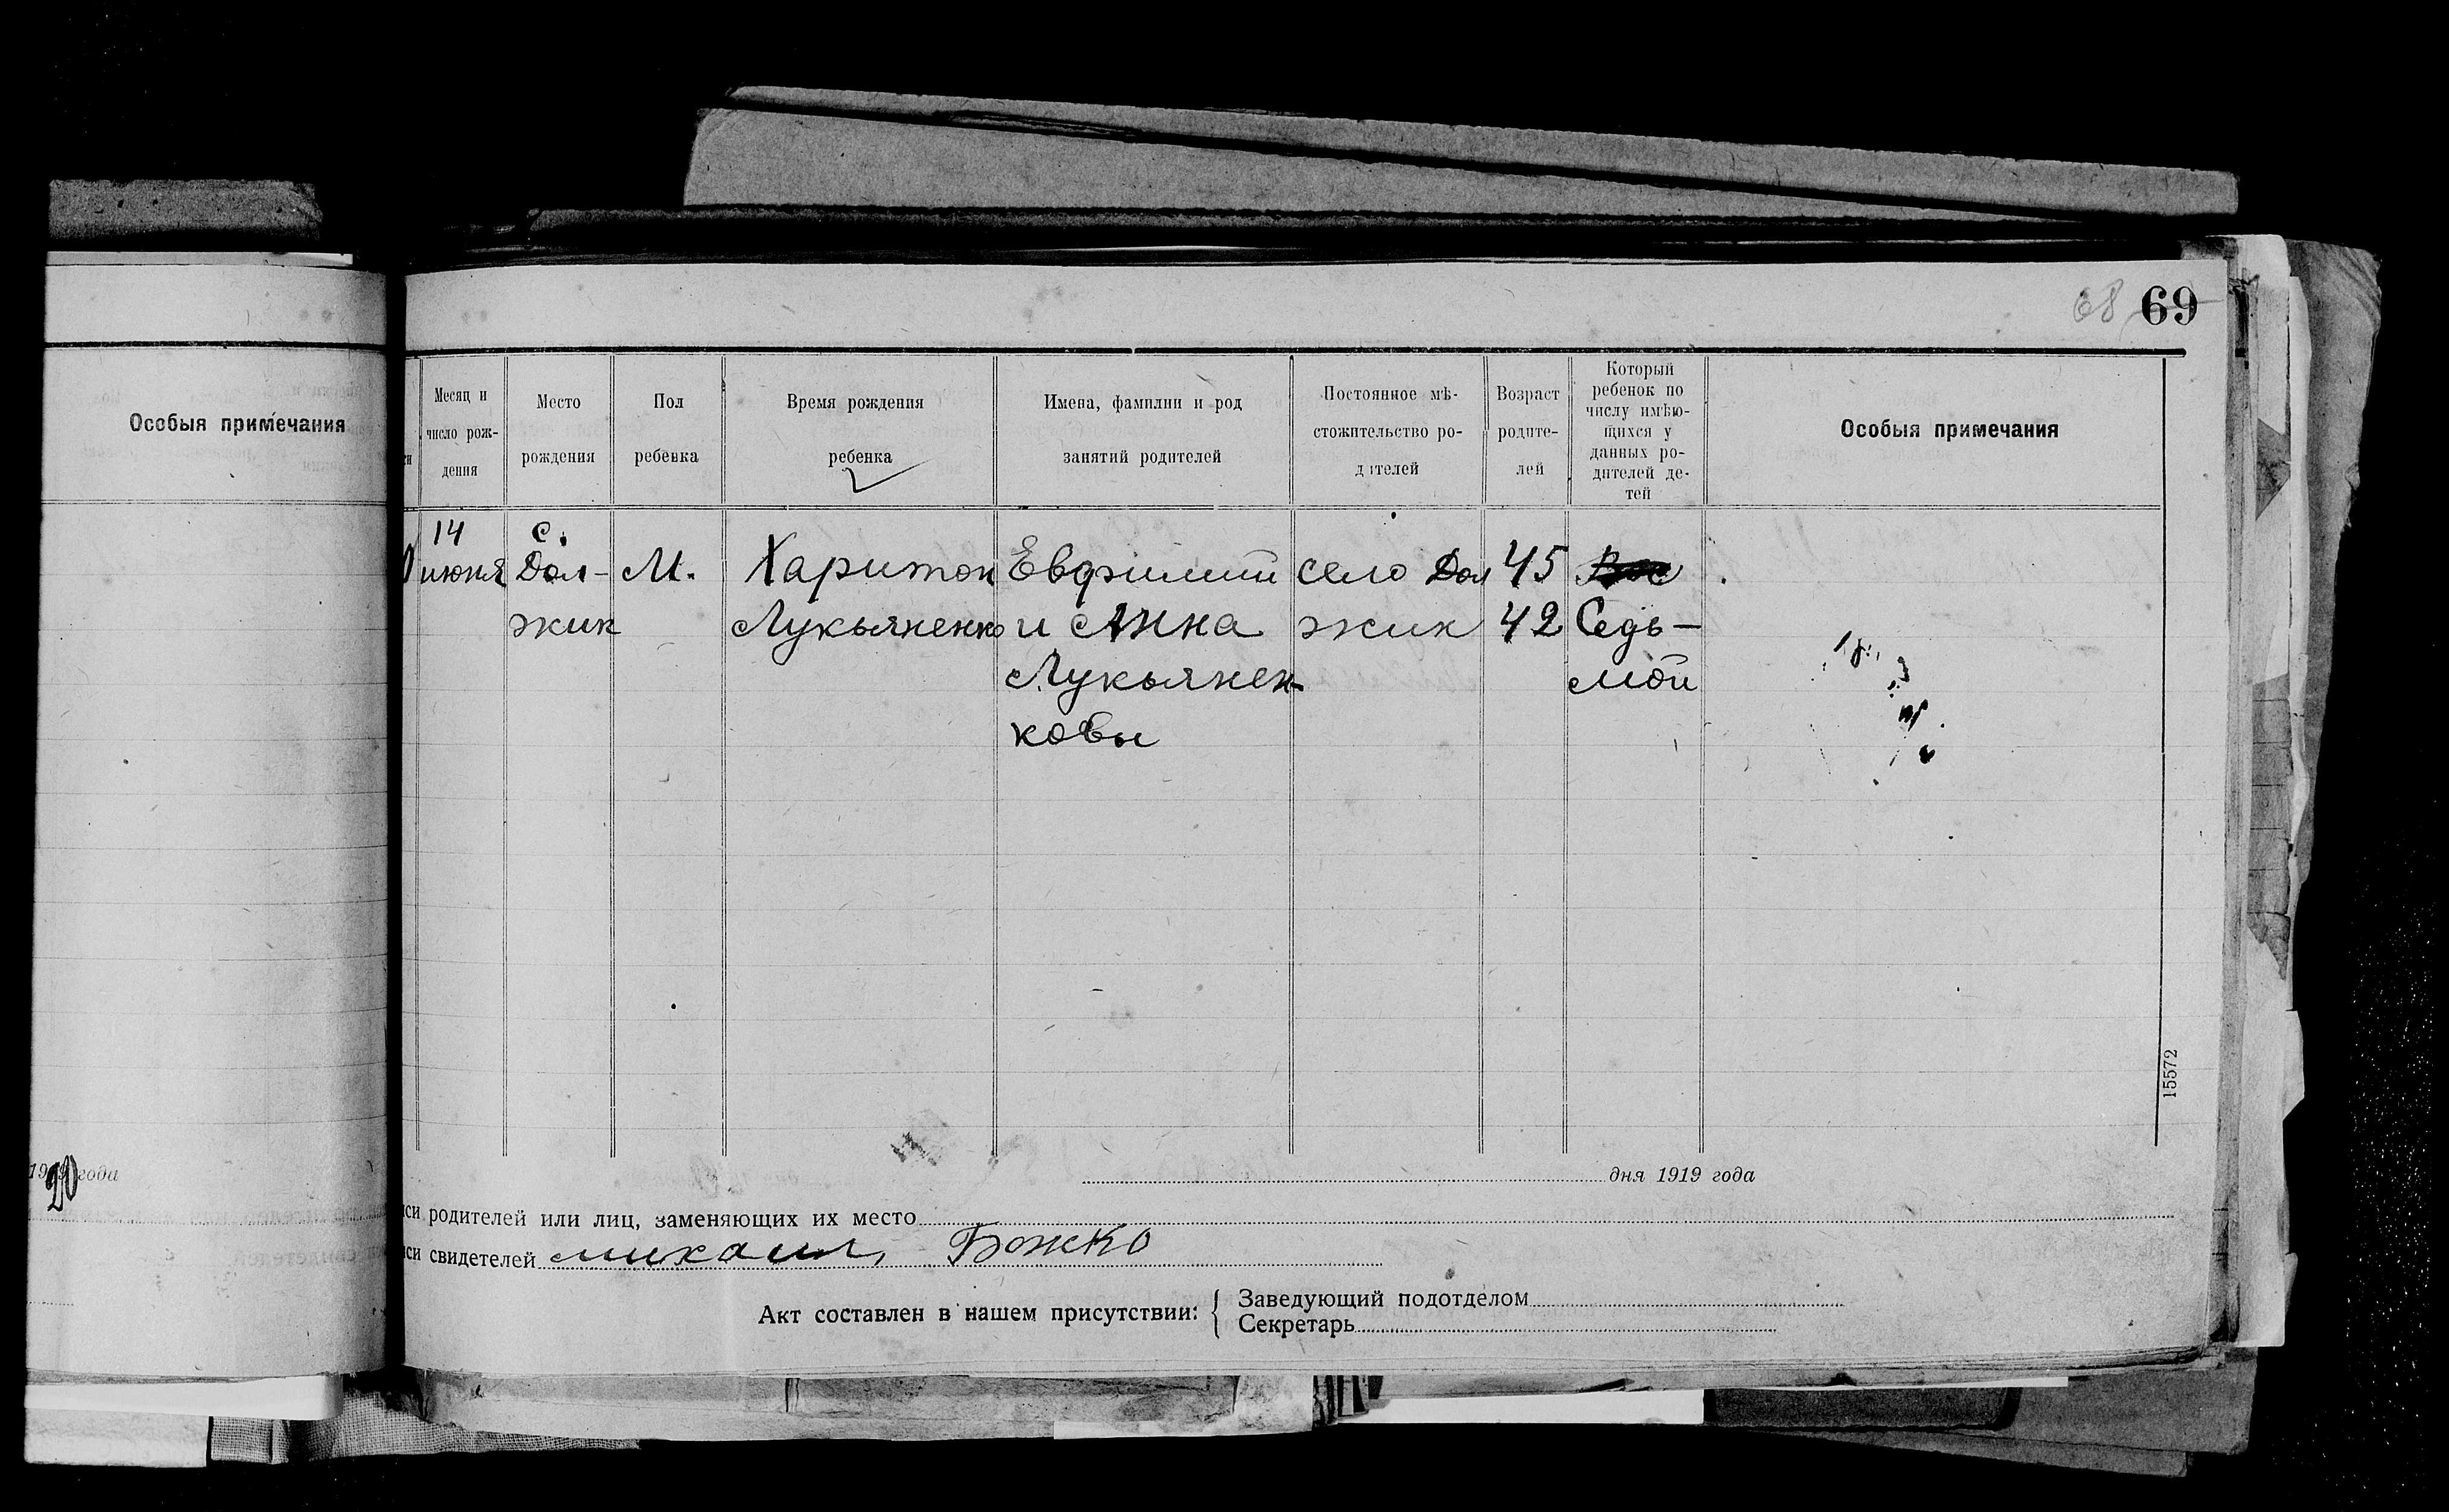 68 69
Особыя примечания
Месяц и
число рож-
дения
Место
рождения
Пол
ребенка
Время рождения
ребенка
Имена, фамилии и род
занятий родителей
Постоянное мѣ-
стожительство ро-
дителей
Возраст
родите-
лей
Который
ребенок по
числу имѣю-
щихся у
данных ро-
дителей де-
тей
Особыя примечания
14
июня
с.
Дол-
жик
М.
Харитон
Лукьяненко
Евфимий
и Анна
Лукьянен-
ковы
село Дол
жик
45
42
Вос
Седь-
мой
15572
20 года
дня 1919 года
родителей или лиц, заменяющих их место
свидетелей михаил, Божко
Акт составлен в нашем присутствии:
Заведующий подотделом
Секретарь